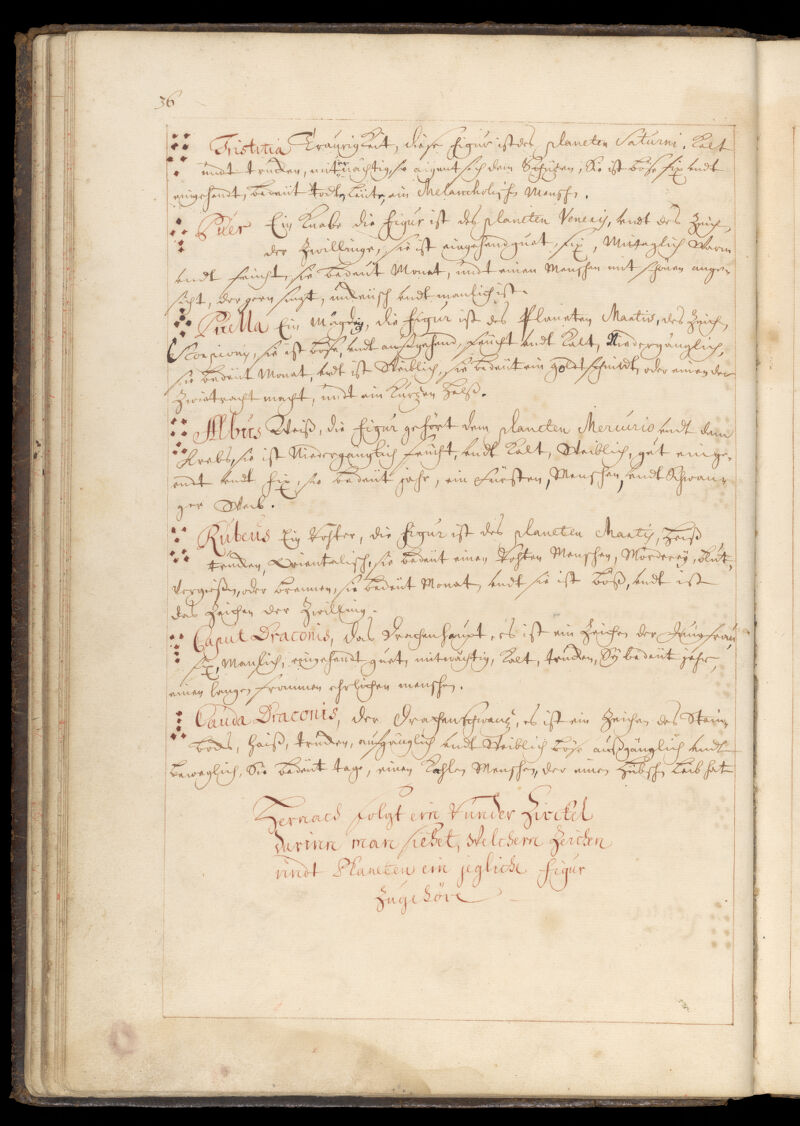 36
Tristitia Traurigkeit, diese figur ist des planeten Saturni, Kalt
undt trucken, mitternächtig, sie aigent sich dem Schüzen, Sie ist böse fix undt
eingehendt, bedeut todte leüte, ein Melancholisch Mensch.
Puer Ein Knabe die figur ist des planeten Veneris, undt des Zeich,
der Zwillinge, sie ist eingehendt guet, fix, Mittaglich Warm
undt feücht, sie bedeut Monat, undt einen Menschen mit schönen ange-
sicht, der gern singt, undt manlich ist.
Puella Ein Mägdlein, die figur ist des Planeten Martis, des Zeich,
Scorpions, sie ist böse, undt außgehend, feücht undt Kalt, Niedergänglich,
sie bedeüt Monat, undt ist Weiblich, sie bedeüt ein goldtschmidt, oder einen der
Zwietracht macht, undt ein Kurzen halß.
Albus Weiß, die figur gehört dem planeten Mercurio undt dem
Krebs, sie ist Niedergänglich feücht, undt Kalt, Weiblich, gut einge-
endt undt fix, sie bedeüt jahr, ein fürsten, Menschen, undt Schwan-
ger Weib.
Rubeus Ein Rohter, die figur ist des planeten Martis, heiß
trucken, Orientalisch, sie bedeüt einen Rohten Menschen, Morderey, blut,
vergießen, oder brennen, sie bedeüt Monat, undt sie ist böß, undt ist
das Zeichen der Zwilling.
Caput Draconis, das Drachenhaupt, es ist ein Zeichen der Jungfrau,
fix, Manlich, eingehendt guet, mitnächtig, Kalt, trucken, Sy bedeüt jahr,
einen langen frommen ehrlichen menschen.
Cauda Draconis, der Drachenschwanz, es ist ein Zeichen des Stein-
bocks, heiß, trucken, aufgänglich undt Weiblich böse außgänglich undt
beweglich, Sie bedeüt tage, einen Kahlen Menschen, der einen hübschen leib hat
Hernach folgt ein Runder Zirckel
darinn man siehet, Welchem Zeichen
undt Planeten ein jegliche figur
Zugehöre